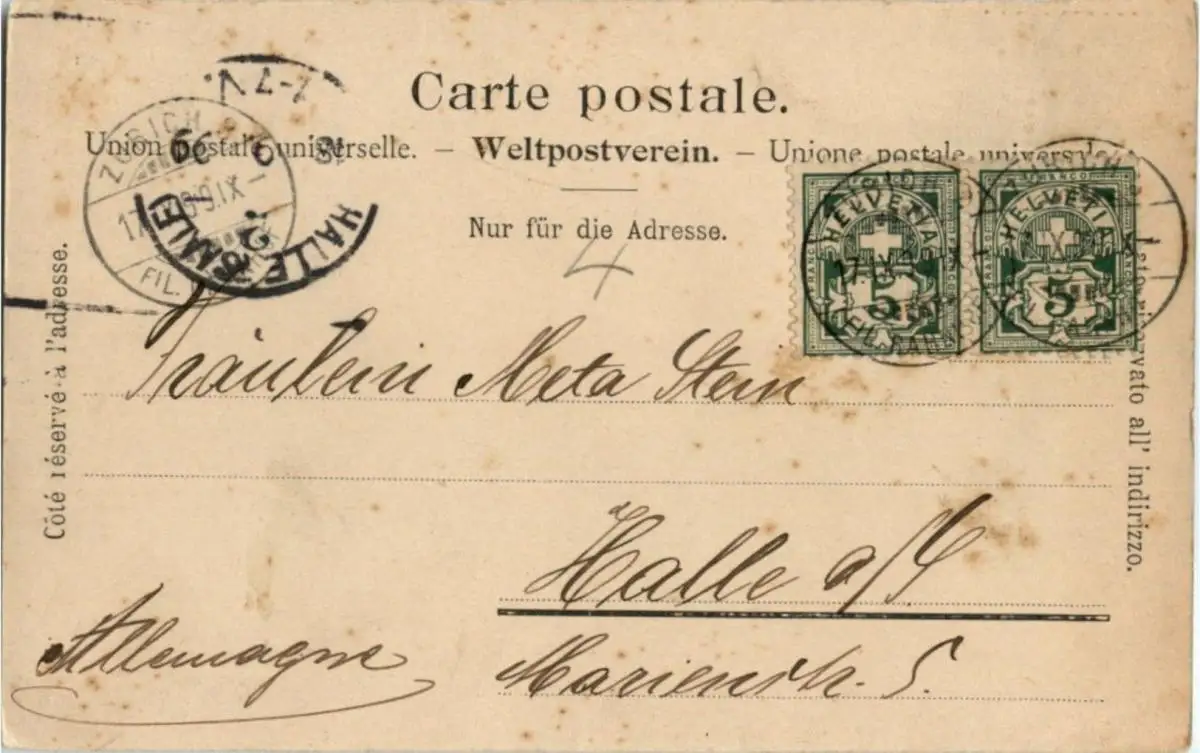 Carte postale.
Union postale universelle. – Weltpostverein. – Unione postale universale.
Nur für die Adresse.
4
Côté réservé à l'adresse.
riservato all' indirizzo.
ZÜRICH
17. IX
FIL.
HALLE (SAALE)
7-7 V.
9 99
2
HELVETIA
5
HELVETIA
5
FRANCO
17. IX
Fräulein Meta Stern
Halle a/S
Allemagne
Marienstr. 5.